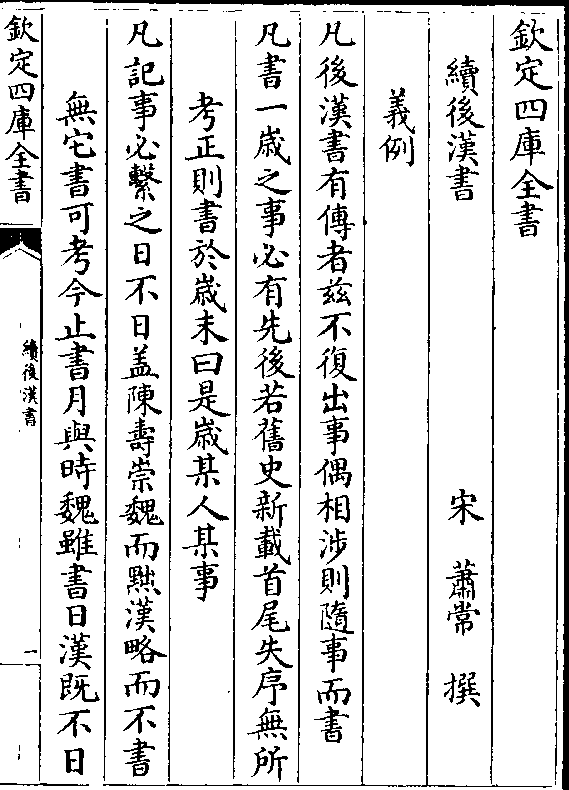 欽定四庫全書
續後漢書　宋　蕭常　撰
義例
凡後漢書有傳者兹不復出事偶相涉則隨事而書
凡書一歲之事必有先後若舊史新載首尾失序無所
考正則書於歲末曰是歲某人某事
凡記事必繫之日不日盖陳壽崇魏而黜漢略而不書
無它書可考今止書月與時魏雖書日漢既不日
欽定四庫全書
續後漢書
一